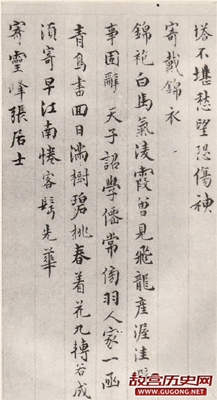 塔不堪愁望恐傷神
寄戴錦衣
錦袍白馬氣凌霞曾見飛龍產渥洼
事固辭 天子詔學僊常傍羽人家一函
青鳥書回日滿樹碧桃春着花九轉若成
須寄早江南倦客鬢先華
寄 峰張居士
故宫历史网
www.GUGONG.net